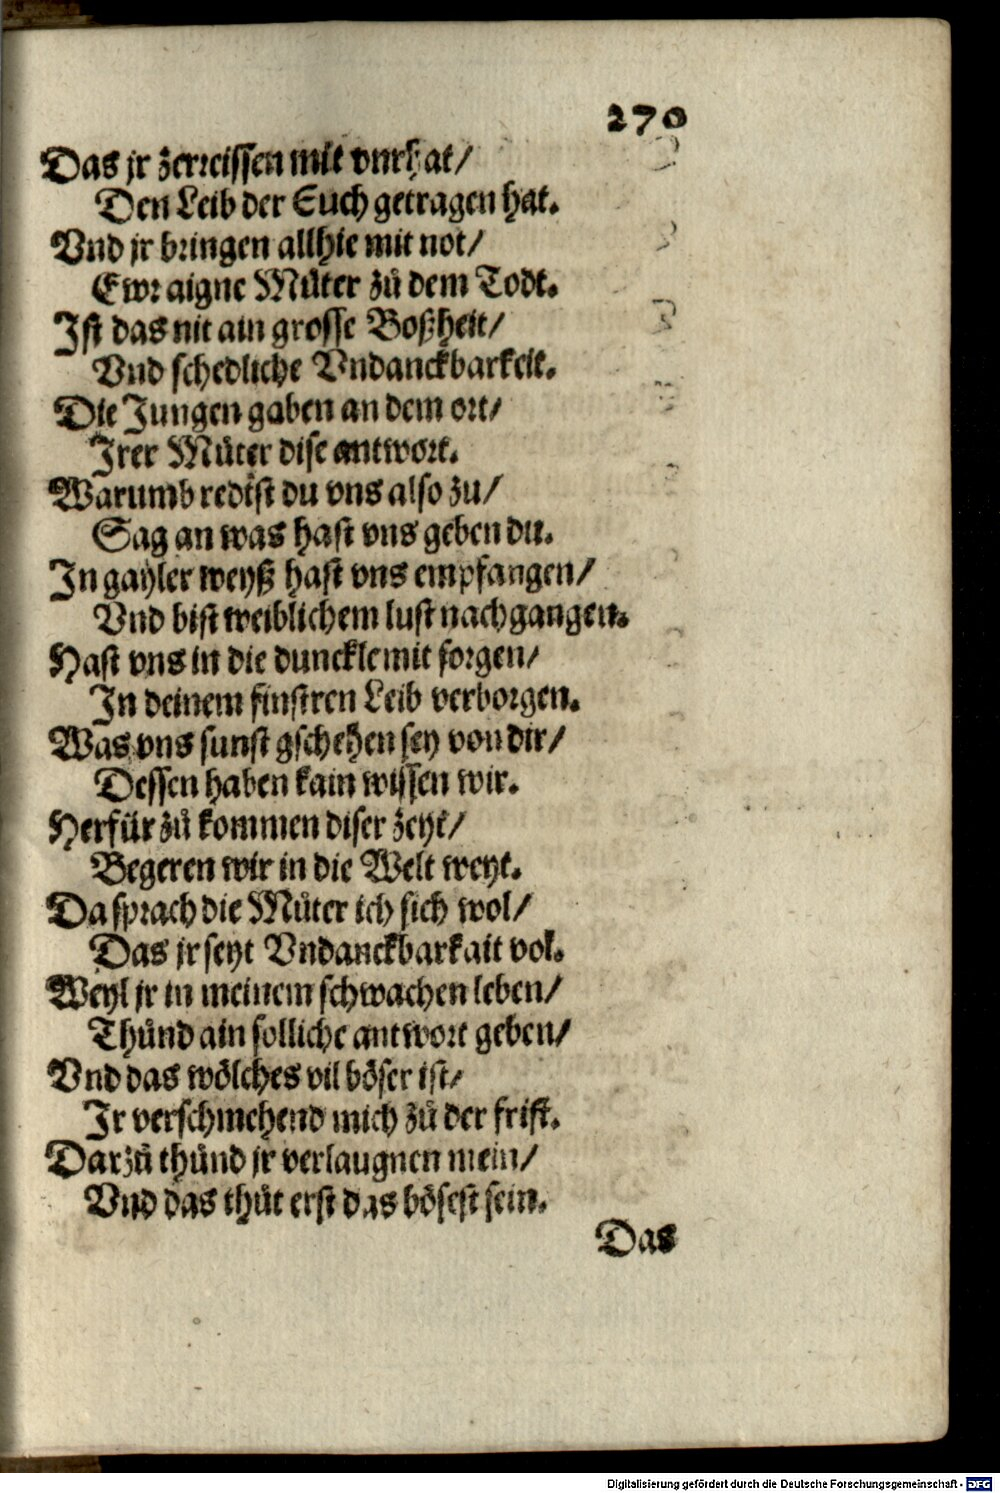 270
Das jr zerreissen mit vnrhat/
Den Leib der Euch getragen hat.
Vnd jr bringen allhie mit not/
Ewr aigne Můter zů dem Todt.
Ist das nit ain grosse Boßheit/
Vnd schedliche Vndanckbarkeit.
Die Jungen gaben an dem ort/
Irer Můter dise antwort.
Warumb redist du vns also zu/
Sag an was hast vns geben du.
In gayler weyß hast vns empfangen/
Vnd bist weiblichem lust nachgangen.
Hast vns in die dunckle mit sorgen/
In deinem finstren Leib verborgen.
Was vns sunst gschehen sey von dir/
Dessen haben kain wissen wir.
Herfür zů kommen diser zeyt/
Begeren wir in die Welt weyt.
Da sprach die Můter ich sich wol/
Das jr seyt Vndanckbarkait vol.
Weyl jr in meinem schwachen leben/
Thůnd ain solliche antwort geben/
Vnd das wölches vil böser ist/
Ir verschmehend mich zů der frist.
Darzů thůnd jr verlaugnen mein/
Vnd das thůt erst das bösest sein.
Das
Digitalisierung gefördert durch die Deutsche Forschungsgemeinschaft - DFG